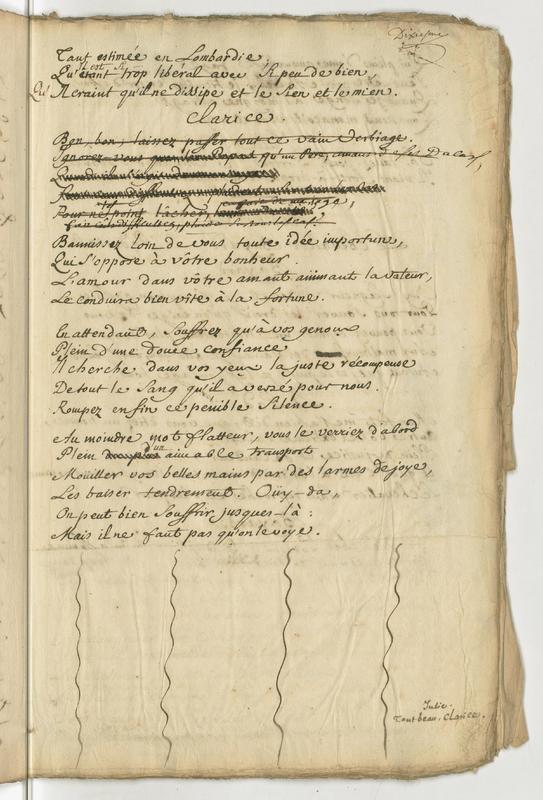 Dixieme
Tant estimée en Lombardie,
Qu'étant est si trop liberal avec si peu de bien,
Qu'il craint qu'il ne dissipe et le sien et le mien.
Clarice.
Bon, bon, laissez passer tout ce vain verbiage.
Ignorez-vous qu'un Pere,
Pour net point lâcher,
Bannissez loin de vous toute idée importune,
Qui s'oppose à vôtre bonheur.
L'amour dans vôtre amant animant la valeur,
Le conduira bien vîte à la fortune.
En attendant, souffrez qu'à vos genoux
Plein d'une douce confiance
Il cherche dans vos yeux la juste récompense
De tout le sang qu'il a versé pour nous.
Rompez enfin ce pénible silence.
Au moindre mot flatteur, vous le verriez d'abord
Plein d'un aimable transport
Moüiller vos belles mains par des larmes de joye,
Les baiser tendrement. Oüy-da,
On peut bien souffrir jusques-là:
Mais il ne faut pas qu'on le voye.
Julie.
Tout beau, Clarice.